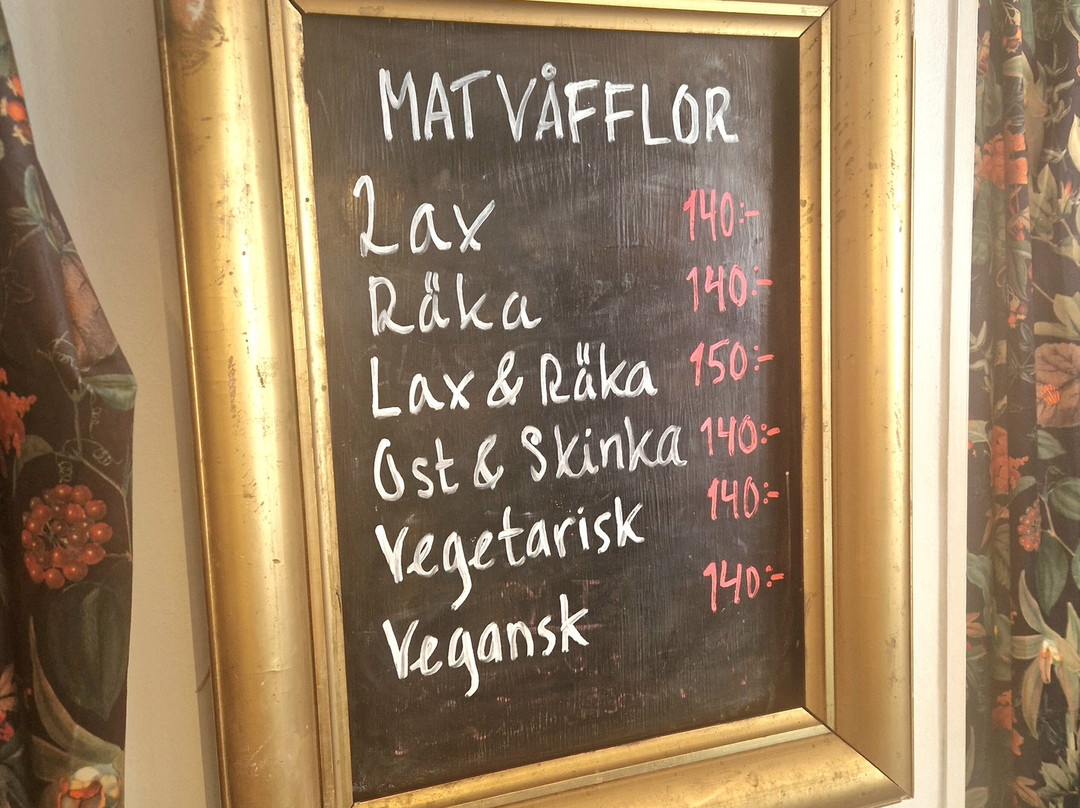 MATVÅFFLOR
Lax 140:-
Räka 140:-
Lax & Räka 150:-
Ost & Skinka 140:-
Vegetarisk 140:-
Vegansk 140:-